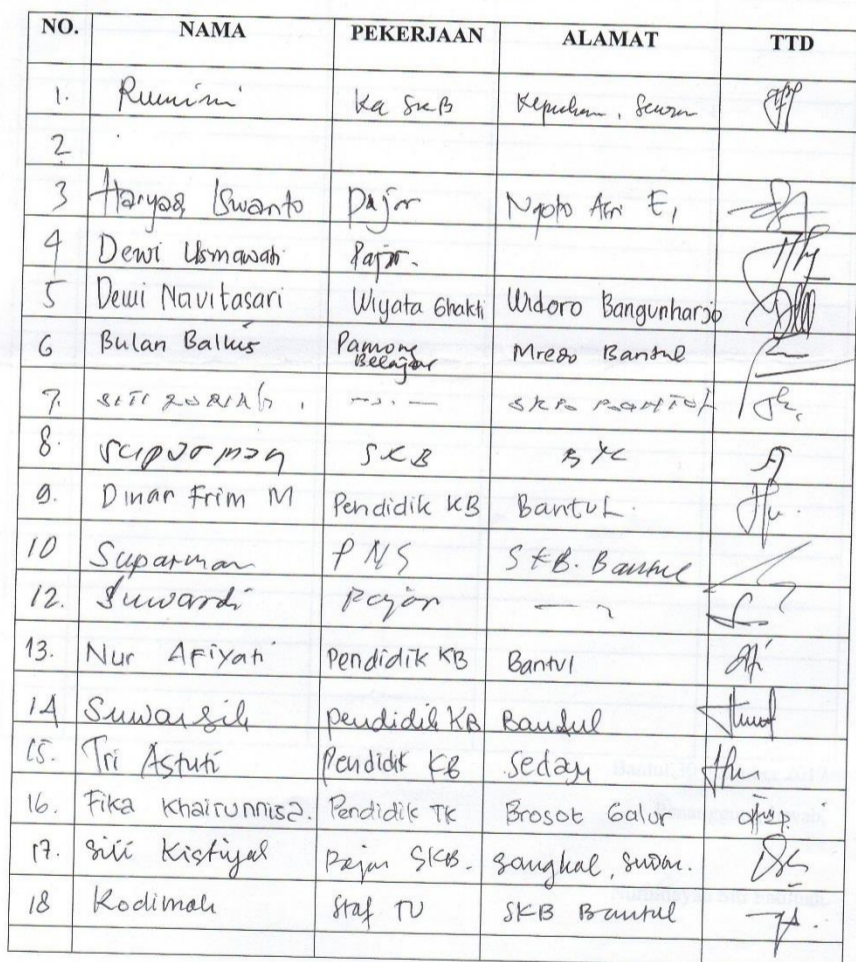 NO. NAMA PEKERJAAN ALAMAT TTD
1. Rumini Ka SKB
2
3 Haryas Iswanto Pajar Ngoto
4 Dewi Usmawati Pajar.
5 Dewi Navitasari Wiyata Bhakti Widoro Bangunharjo
6 Bulan Balkis Pamong Belajar Bantul
7. SKB BANTUL
8. SKB
9. Dinar Frim M Pendidik KB Bantul.
10 Suparman PNS SKB. Bantul
12. Suwardi Pajar
13. Nur Afiyati Pendidik KB Bantul
14 Suwarsih Pendidik KB Bantul
15. Tri Astuti Pendidik KB Sedayu
16. Fika Khairunnisa. Pendidik TK Brosot Galur
17. Siti SKB.
18 Rodimah Staf TU SKB Bantul